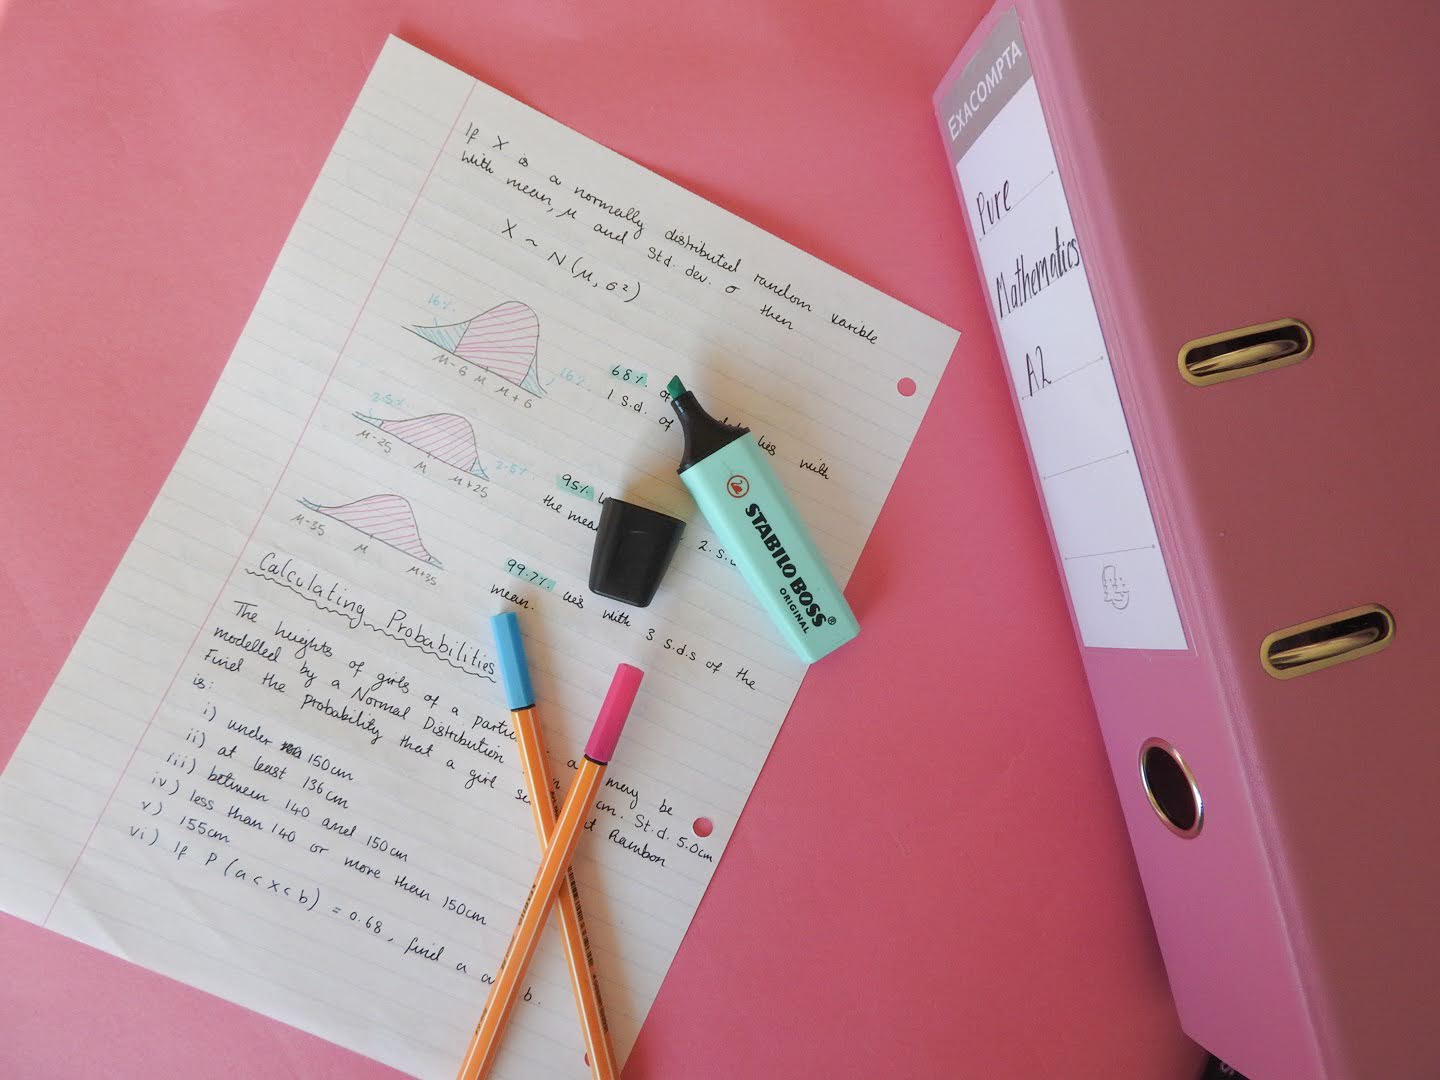 If X is a normally distributed random varible
with mean, μ and std. dev. σ then
X ~ N(μ, σ²)
16%
μ-σ μ μ+σ
16%
68% of lies with
1 s.d. of
2.5%
μ-2σ μ μ+2σ
2.5%
95%
the mea
2.s.
μ-3σ μ μ+3σ
99.7% lies with 3 s.d.s of the
mean.
Calculating Probabilities
The heights of girls of a partic a may be
modelled by a Normal Distribution cm. St.d. 5.0cm
Find the probability that a girl se at Rambon
is:
i) under 150cm
ii) at least 136cm
iii) between 140 and 150cm
iv) less than 140 or more then 150cm
v) 155cm
vi) If P(a<x<b) = 0.68, find a b.
STABILO BOSS®
ORIGINAL
EXACOMPTA
Pure
Mathematics
A2